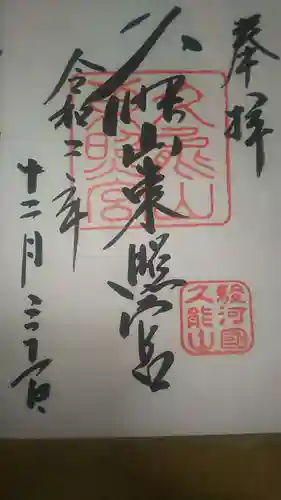 奉拝
久能山東照宮
令和二年
十二月三十一日
久能山東照宮
駿河国
久能山